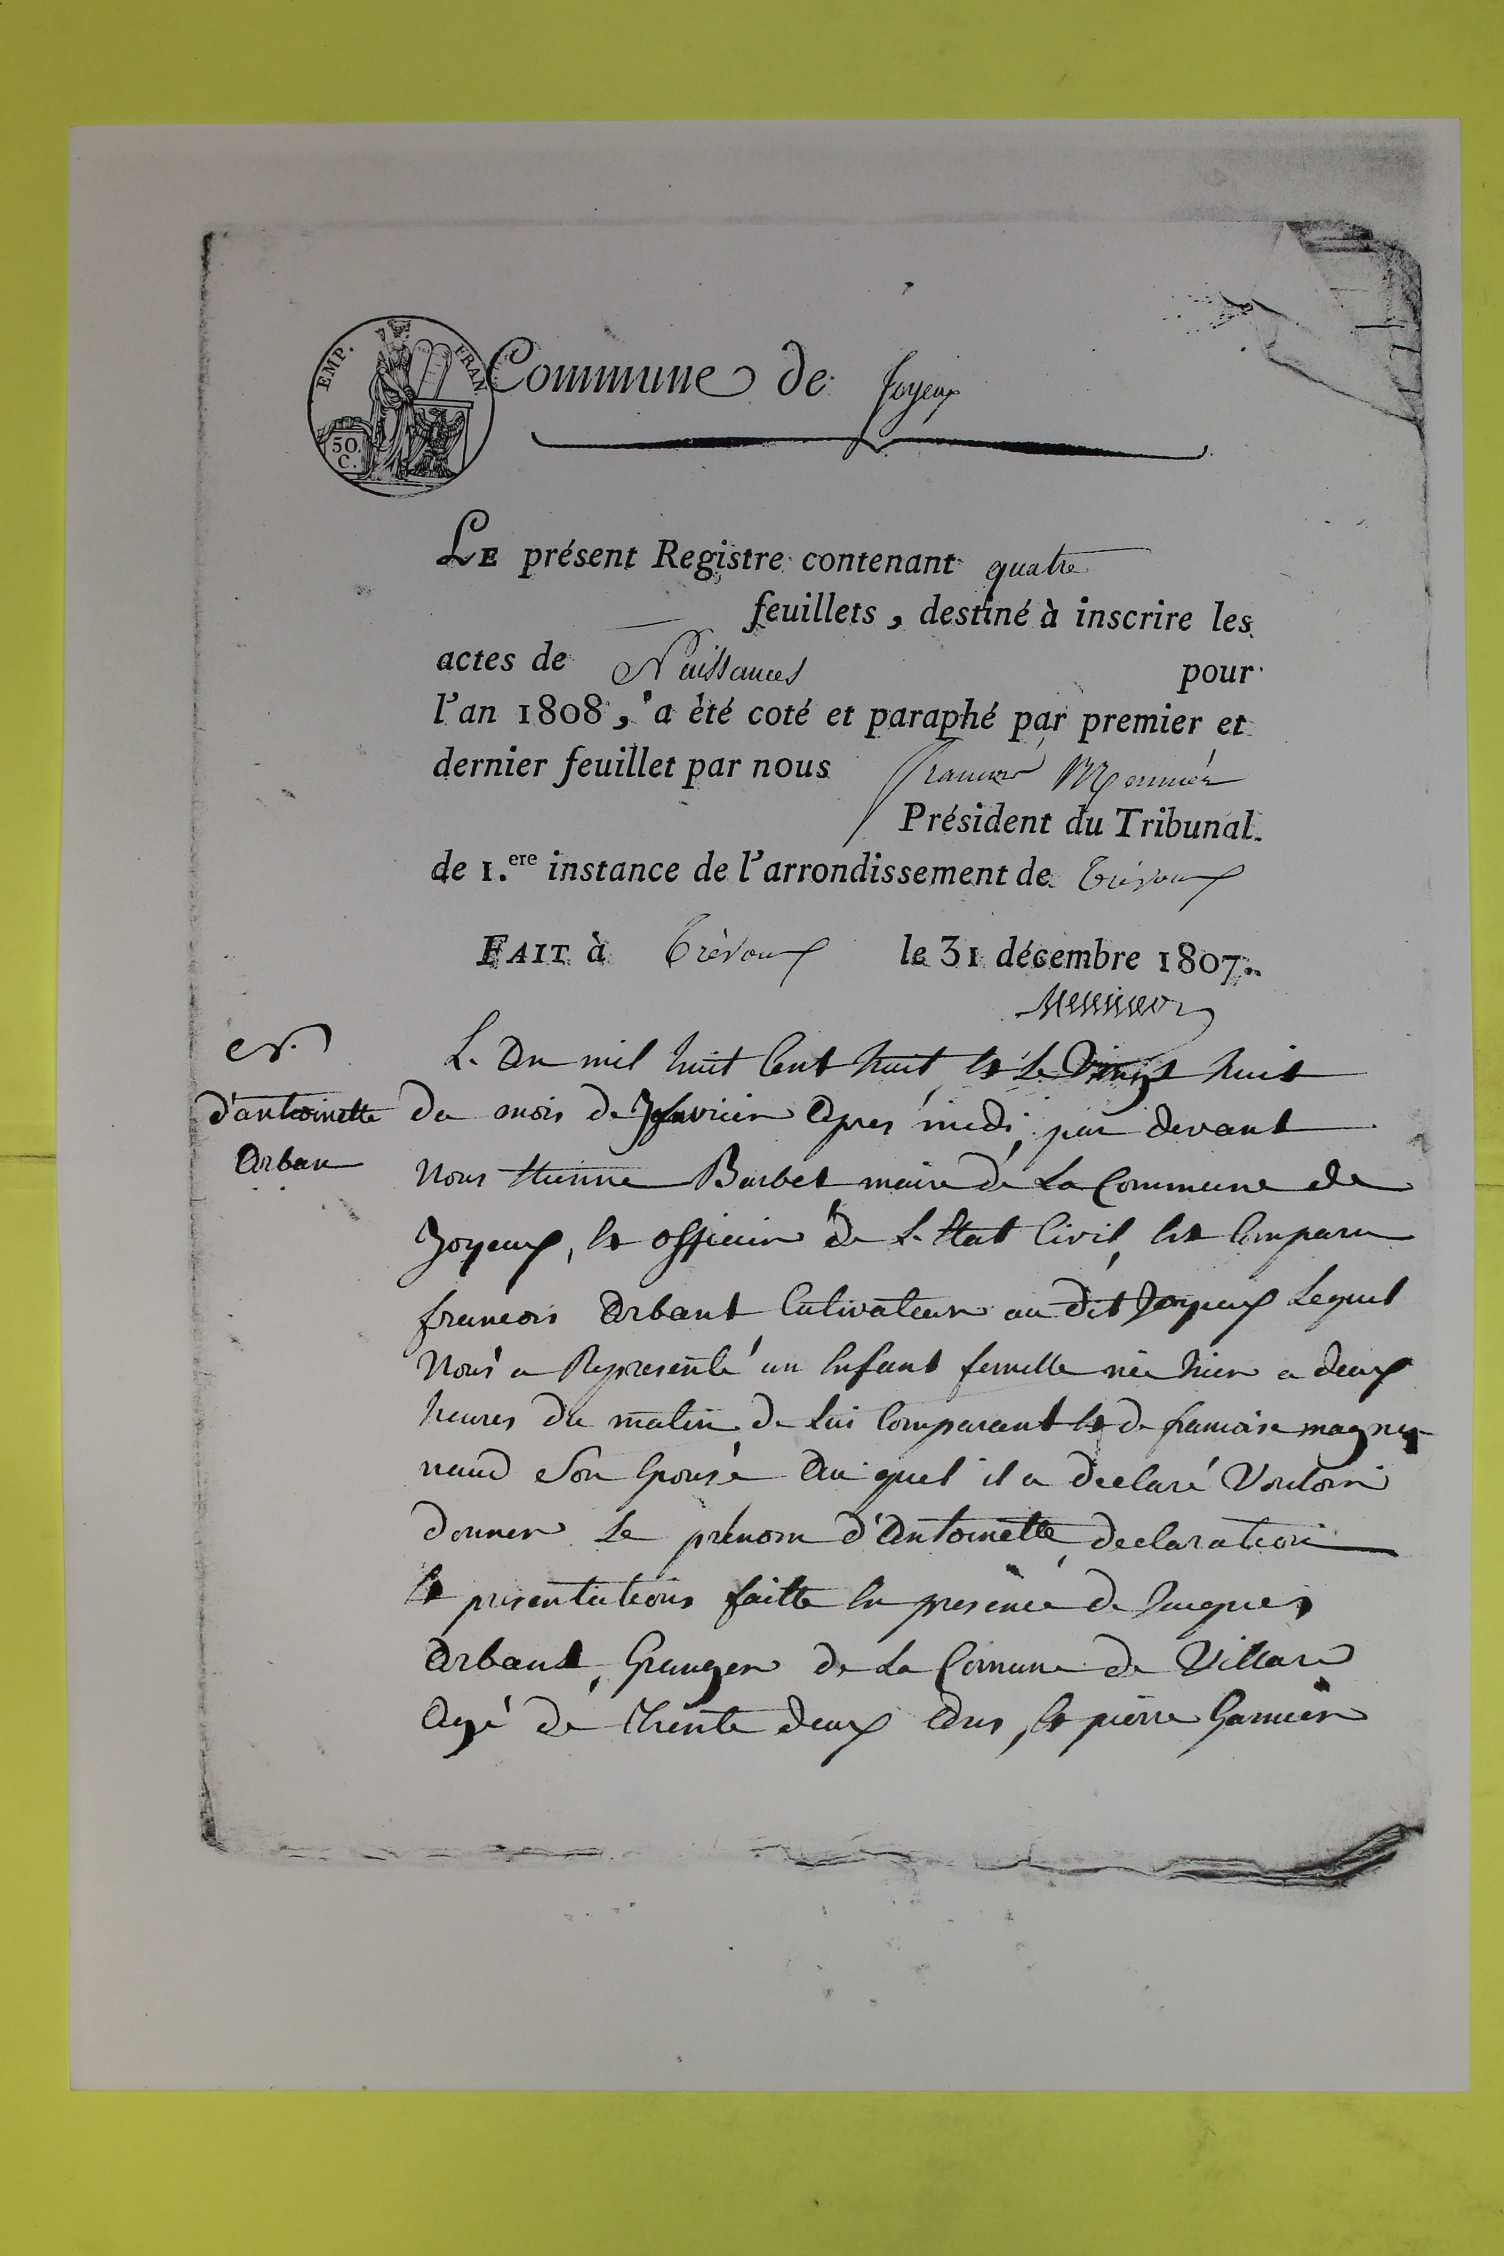 EMP. FRAN
50. C.
Commune de Joyeux
LE présent Registre contenant quatre
feuillets, destiné à inscrire les
actes de Naissances pour
l'an 1808, a été coté et paraphé par premier et
dernier feuillet par nous François Monnier
Président du Tribunal
de 1.ere instance de l'arrondissement de Trévoux
FAIT à Trévoux le 31 décembre 1807.
N.
d'antoinette
Arban
L. An mil huit Cent huit, et Le Vingt huit
du mois de Janvier Apres midi, par devant
Nous Etienne Barbet maire de La Commune de
Joyeux, et officier de L. Etat Civil, Est Comparu
francois Arbant Cultivateur au dit Joyeux Lequel
Nous a Representé un Enfant femelle née hier a deux
heures du matin de Lui Comparant et de francoise magny
naud son Epouse Au quel il a declaré Vouloir
donner Le prénom d'Antoinette, declaration
Et presentations faitte En presence de Jacques
Arbant, Granger de La Comune de Villars
Agé de Trente deux Ans, et pierre Garnier